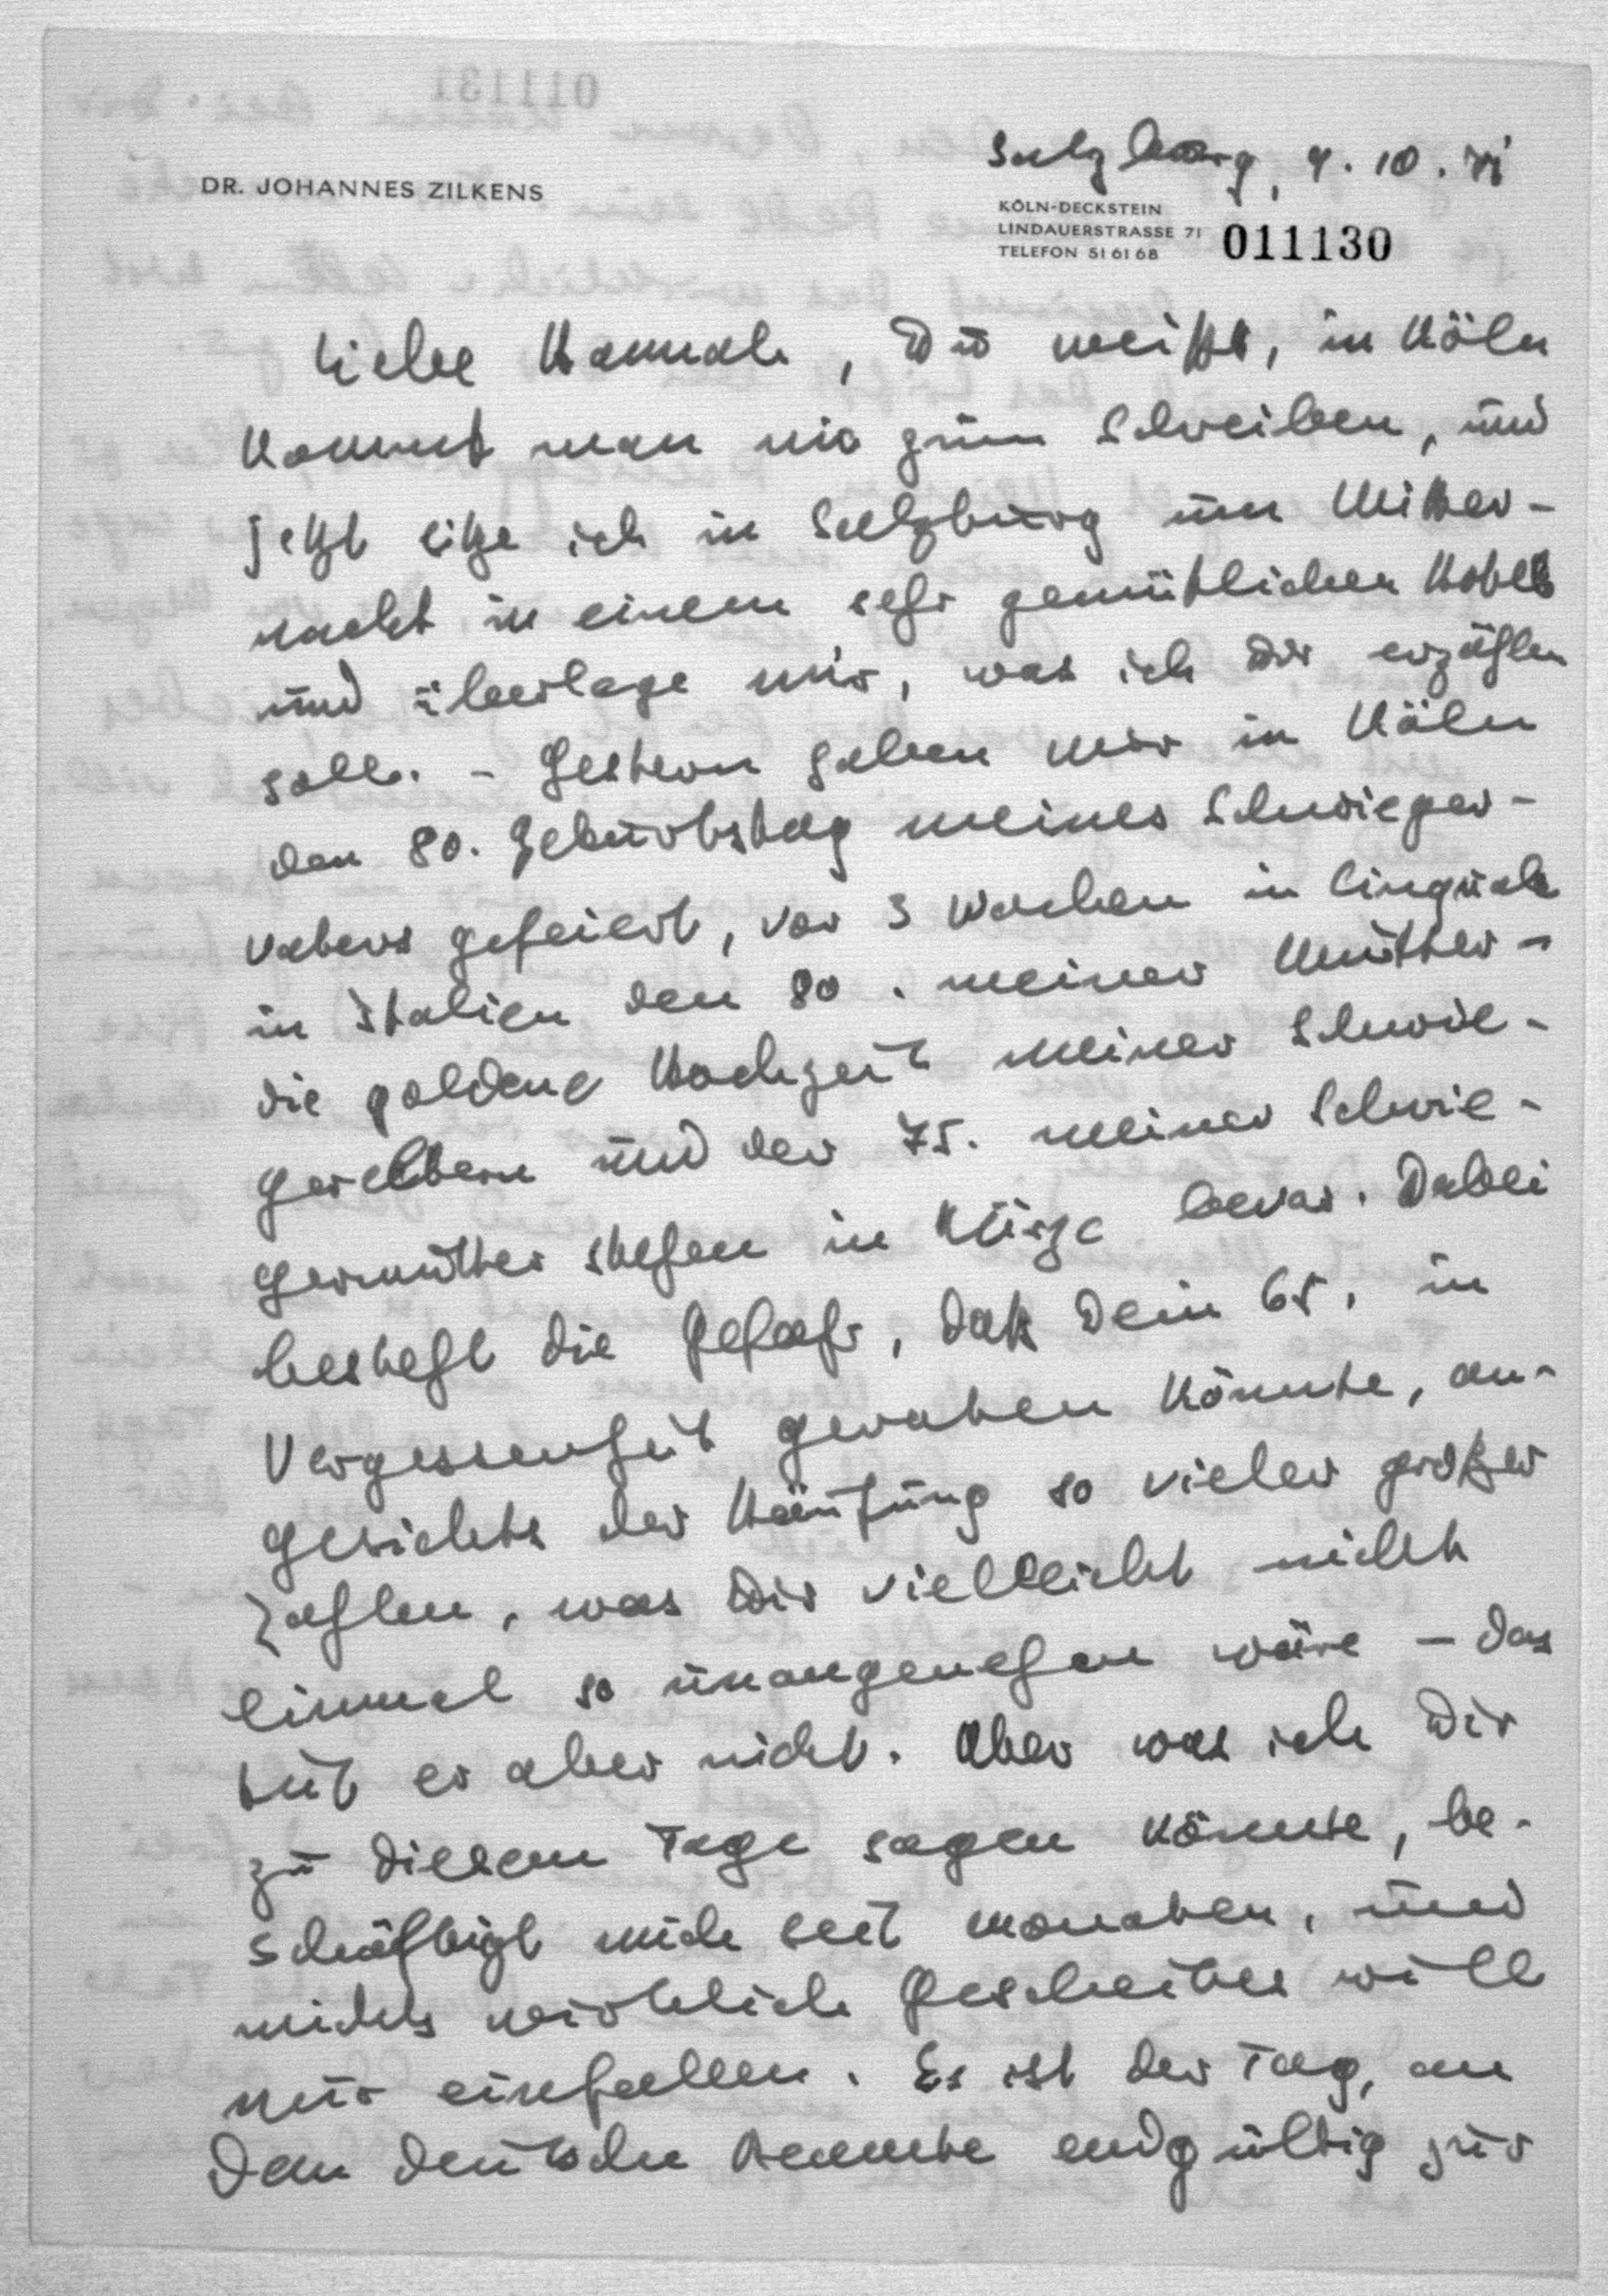 Salzburg, 9.10.71
DR. JOHANNES ZILKENS
KÖLN-DECKSTEIN
LINDAUERSTRASSE 71
TELEFON 51 61 68
011130
Liebe Hannah, Du weißt, in Köln
kommt man nie zum Schreiben, und
jetzt sitze ich in Salzburg um Mitter-
nacht in einem sehr gemütlichen Hotel
und überlege mir, was ich Dir erzählen
soll. - Gestern haben wir in Köln
den 80. Geburtstag meines Schwieger-
vaters gefeiert, vor 3 Wochen in
in Italien den 80. meiner Mutter -
die goldene Hochzeit meiner Schwie-
gereltern und der 75. meiner Schwie-
germutter stehen in Kürze bevor. Dabei
besteht die Gefahr, daß Dein 65. in
Vergessenheit geraten könnte, an-
gesichts der Häufung so vieler großer
Zahlen, was Dir vielleicht nicht
einmal so unangenehm wäre - das
tut er aber nicht. Aber was ich Dir
zu diesem Tage sagen könnte, be-
schäftigt mich seit Monaten, und
nichts wirklich Gescheites will
mir einfallen. Es ist der Tag, an
dem deutsche Beamte endgültig zur